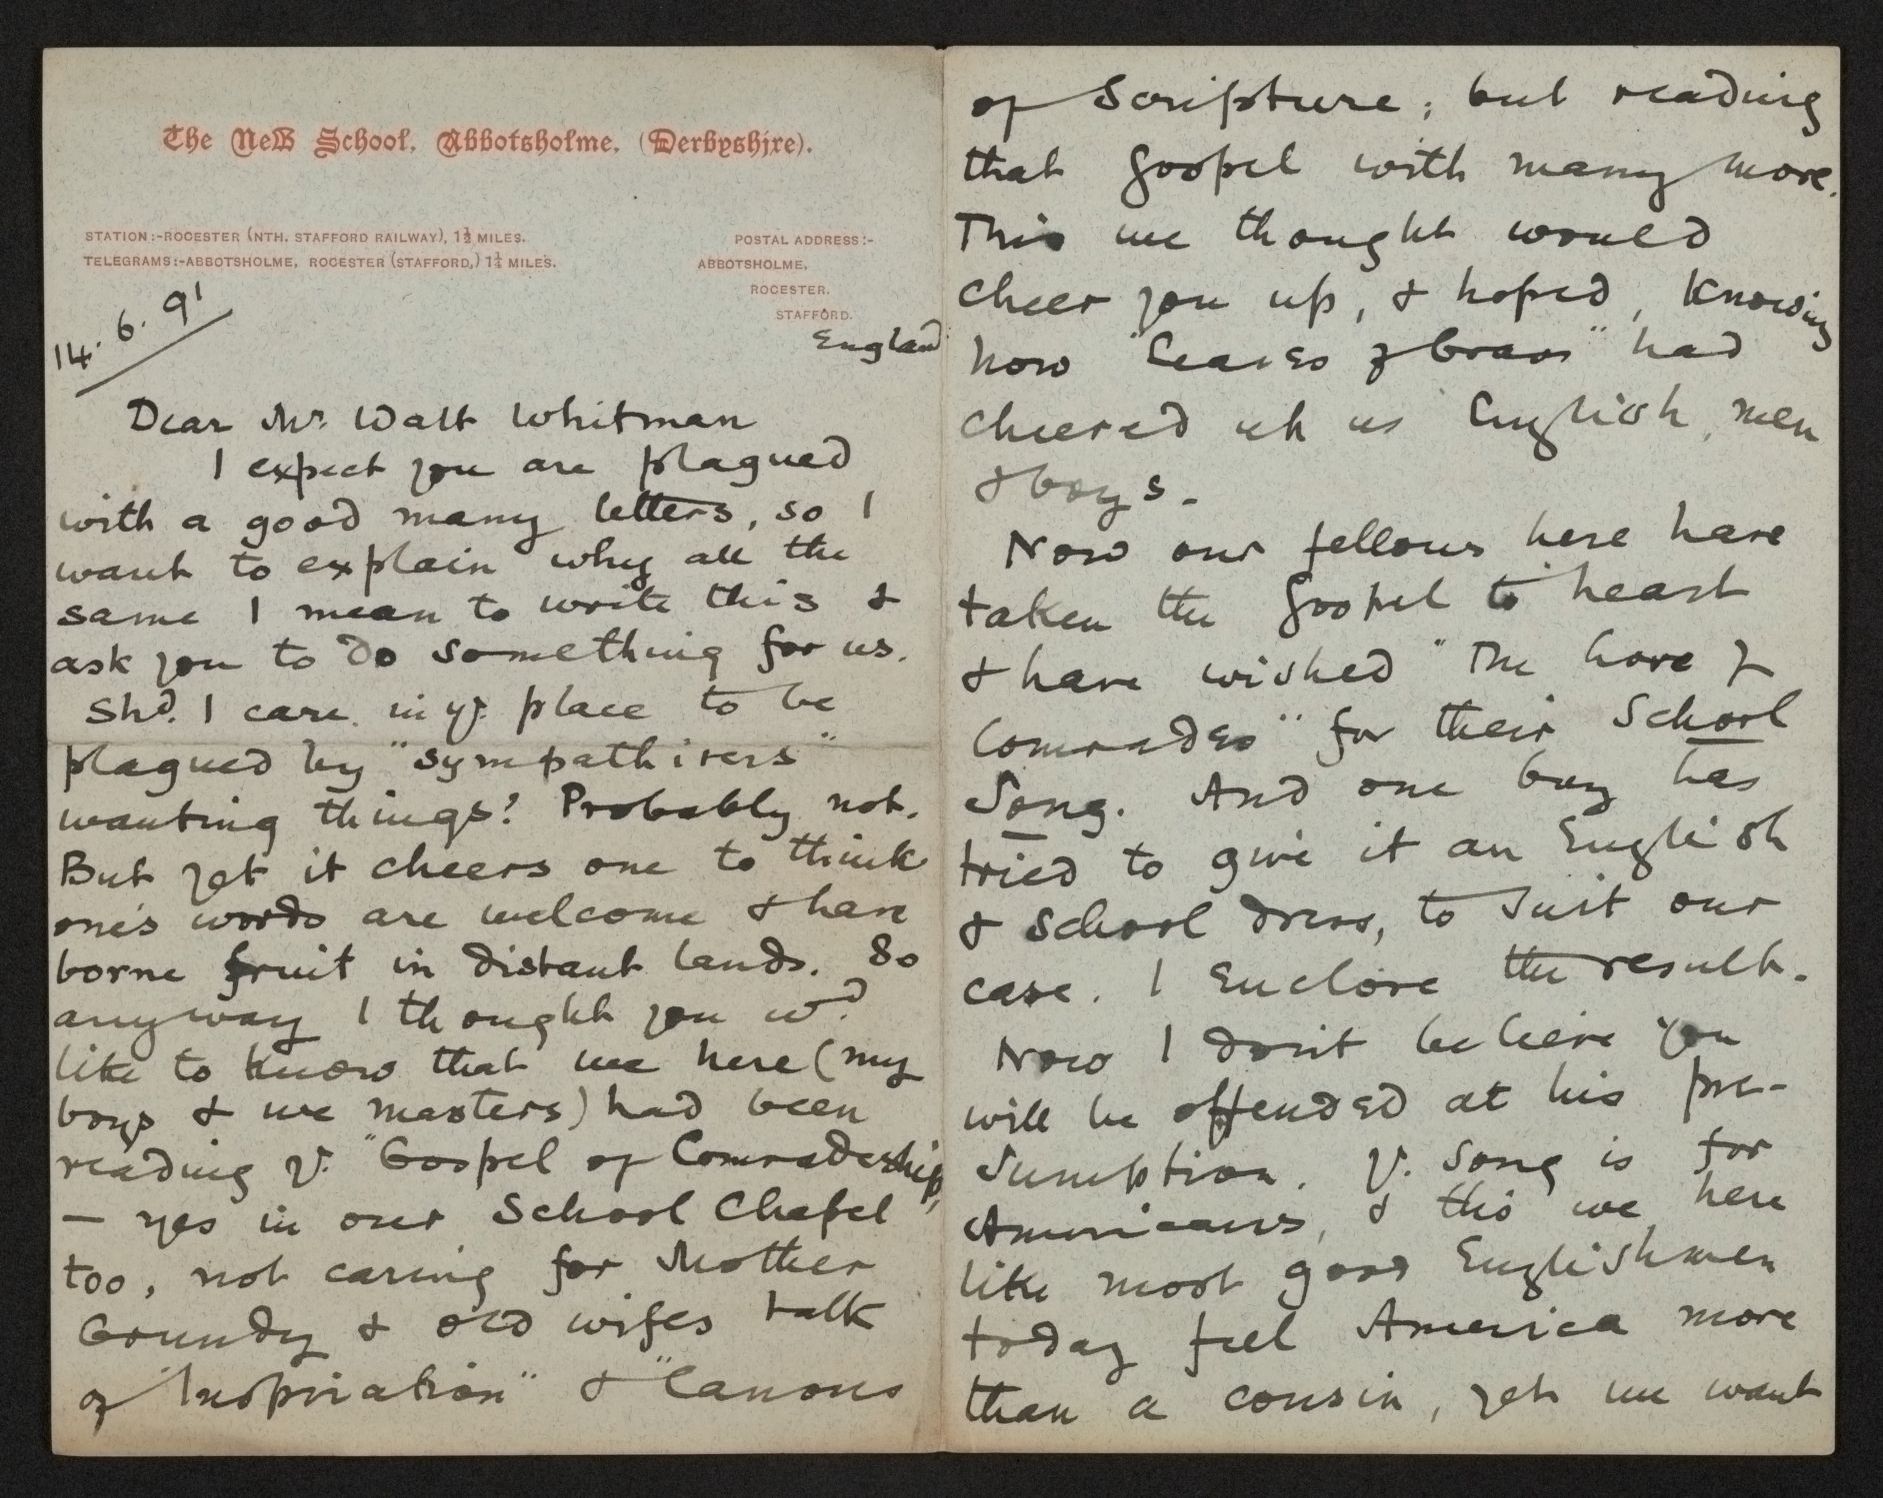 The New School, Abbotsholme, (Derbyshire).
STATION:-ROCESTER (NTH. STAFFORD RAILWAY), 1½ MILES.
TELEGRAMS:-ABBOTSHOLME, ROCESTER (STAFFORD,) 1½ MILES.
POSTAL ADDRESS:-
ABBOTSHOLME,
ROCESTER.
STAFFORD.
England
14. 6. 91
Dear Mr. Walt Whitman
I expect you are plagued
with a good many letters, so I
want to explain why all the
same I mean to write this &
ask you to do something for us.
Shd. I care in yr. place to be
plagued by "sympathisers"
wanting things? Probably not.
But yet it cheers one to think
one's words are welcome & have
borne fruit in distant lands. So
anyway I thought you wd.
like to know that we here (my
boys & we masters) had been
reading yr. "Gospel of Comradeship,"
— yes in our School Chapel
too, not caring for Mother
Grundy & old wifes talk
of "Inspiration" & "Canons
of Scripture; but reading
that Gospel with many more.
This we thought would
cheer you up, & hoped, knowing
how "Leaves of Grass" had
cheered up us English, men
& boys.
Now our fellows here have
taken the Gospel to heart
& have wished "The Love of
Comrades" for their School
Song. And one boy has
tried to give it an English
& School dress, to suit our
case. I enclose the result.
Now I don't believe you
will be offended at his pre-
sumption. Yr. Song is for
Americans, & tho' we here
like most good Englishmen
today feel America more
than a cousin, yet we want